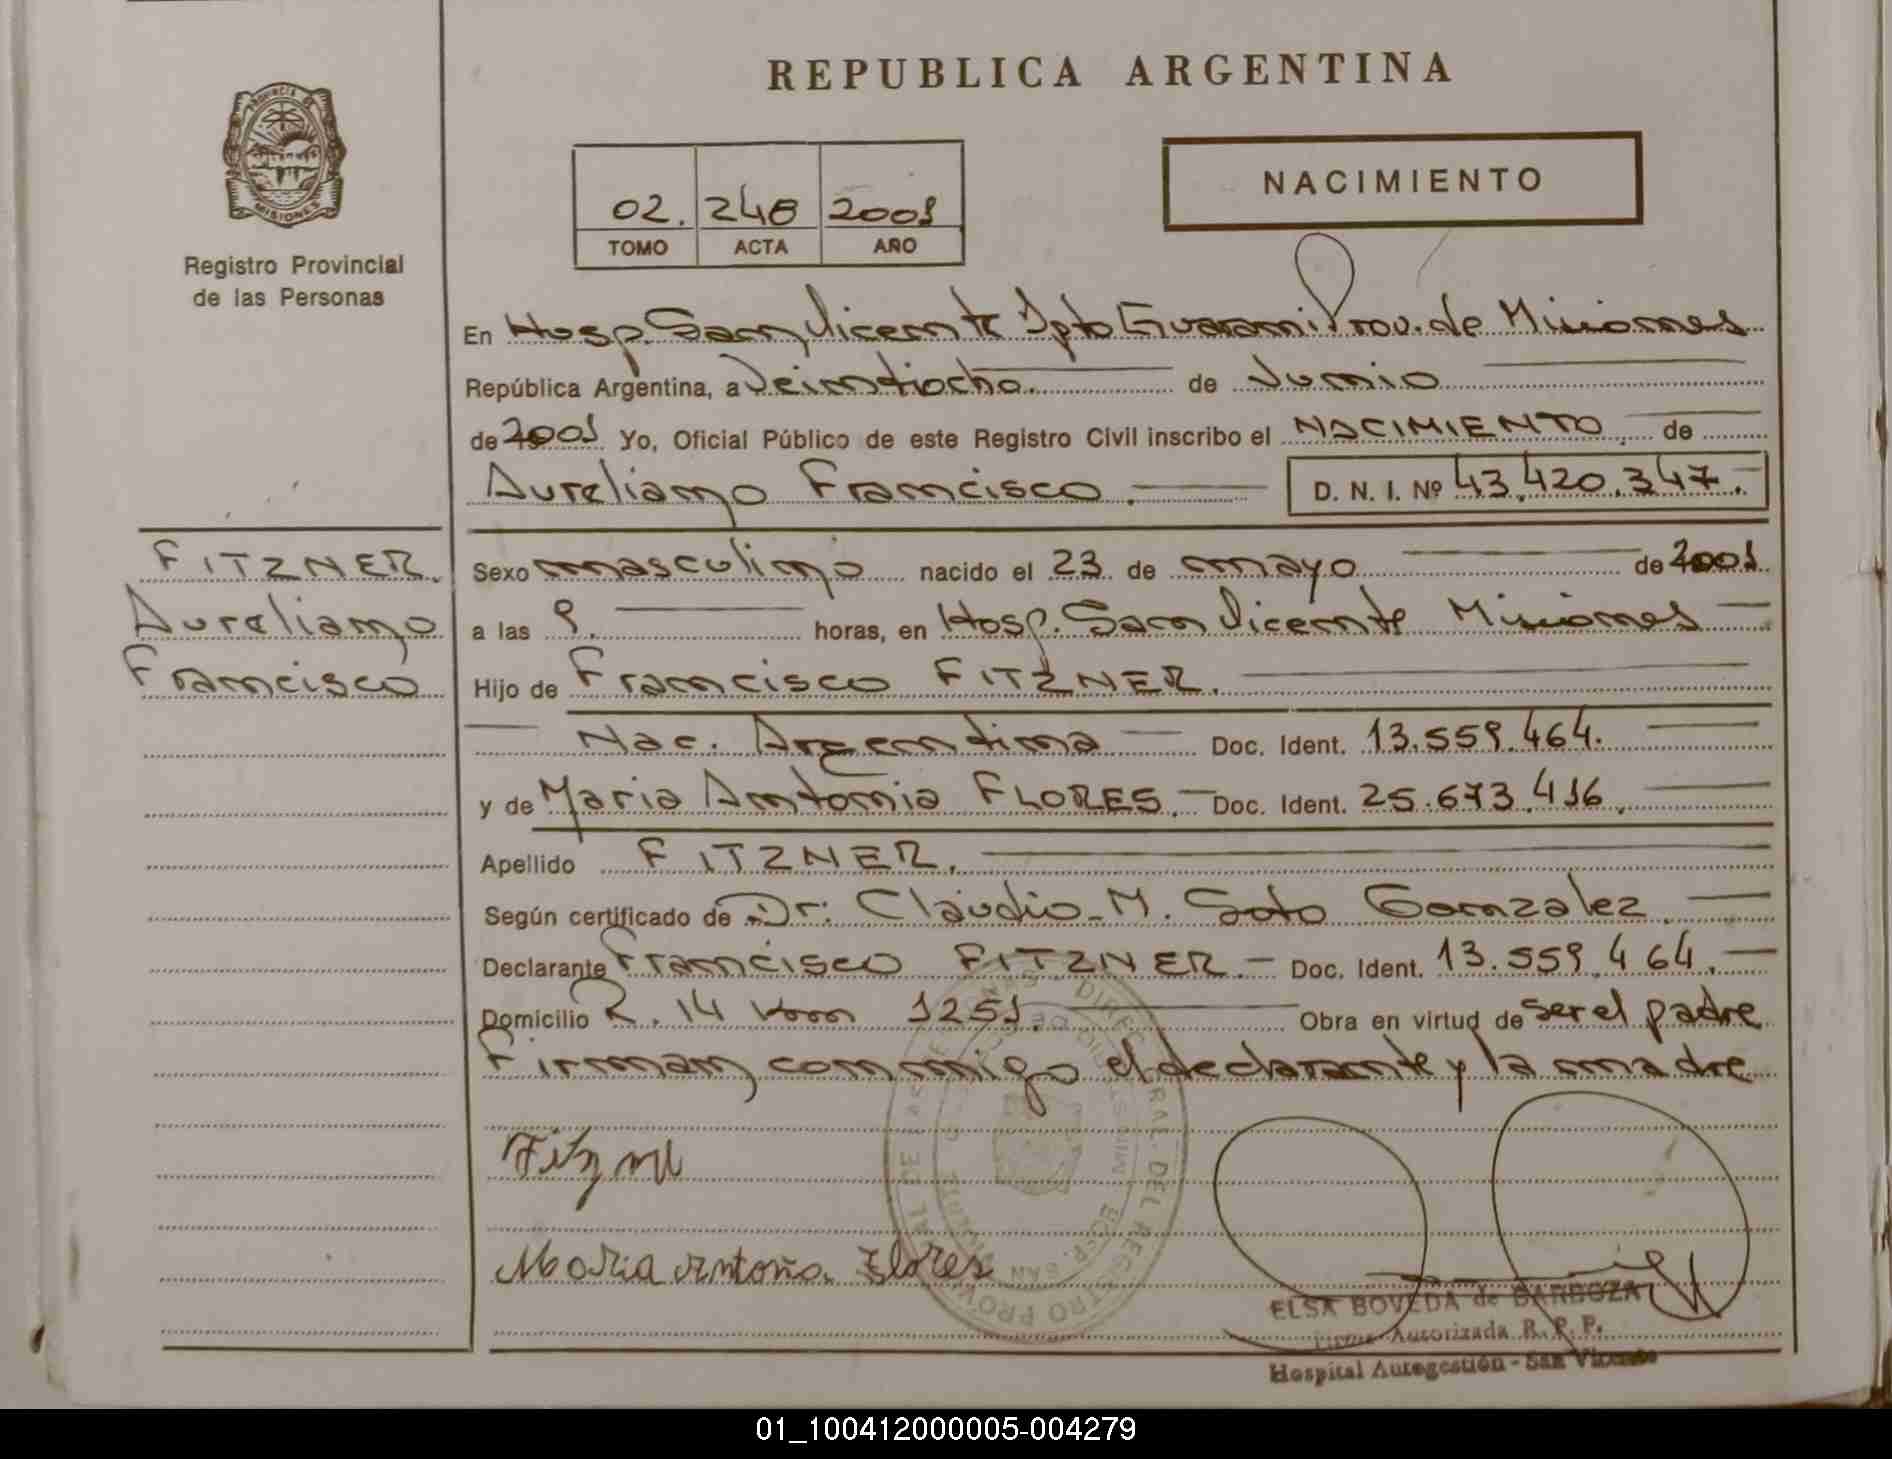 REPUBLICA ARGENTINA
PROVINCIA DE
MISIONES
Registro Provincial
de las Personas
NACIMIENTO
02. 248 2001
TOMO ACTA AÑO
En Hosp. San Vicente Dpto Guarani Prov. de Misiones
República Argentina, a Veintiocho. de Junio
de 2001 Yo, Oficial Público de este Registro Civil inscribo el NACIMIENTO, de
Aureliano Francisco. D. N. I. Nº 43.420.347.
FITZNER.
Aureliano
Francisco
Sexo masculino nacido el 23 de mayo de 2001
a las 9. horas, en Hosp. San Vicente Misiones
Hijo de Francisco FITZNER.
Nac. Argentina Doc. Ident. 13.559.464.
y de Maria Antonia FLORES. Doc. Ident. 25.673.416.
Apellido FITZNER.
Según certificado de Dr. Claudio M. Soto Gonzalez.
Declarante Francisco FITZNER. Doc. Ident. 13.559.464.
Domicilio R. 14 Km 1251. Obra en virtud de ser el padre
Firman conmigo el declarante y la madre
Maria Antonia Flores
ELSA BOVEDA de BARBOZA
Firma Autorizada R. P. P.
Hospital Autogestión - San Vicente
01_100412000005-004279